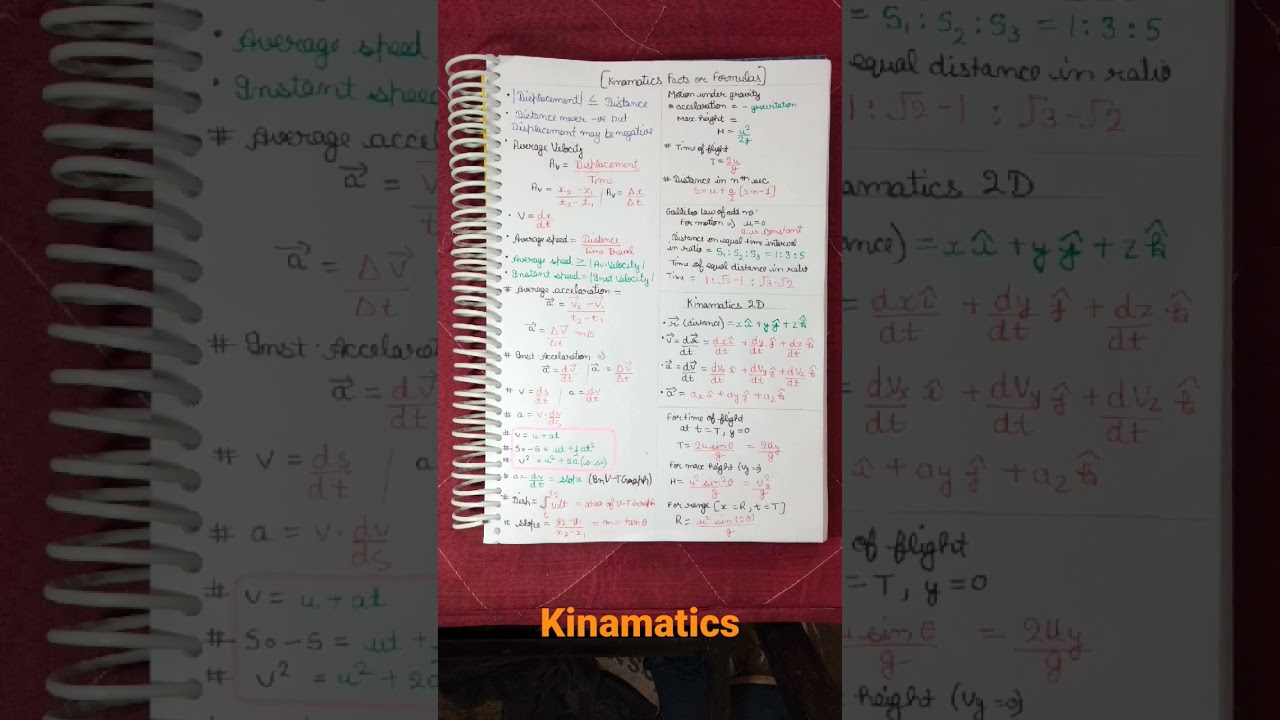 [Kinamatics Facts or Formulas]
• |Displacement| ≤ Distance
• Distance never -ve but
Displacement may be negative
• Average Velocity
Av = Displacement / Time
Av = x₂ - x₁ / t₂ - t₁ | Av = Δx / Δt
• V = dx / dt
• Average speed = Distance / time travel
• Average speed ≥ |Av. Velocity|
• Instant speed = |Inst Velocity|
# Average accelaration =
a⃗ = V⃗₁ - V⃗₁ / t₂ - t₁
a⃗ = ΔV⃗ / Δt m/s
# Inst. Accelaration =>
a⃗ = dV⃗ / dt | a⃗ = ΔV⃗ / Δt
# v = ds / dt | a = dv / dt
# a = v. dv / ds
# v = u + at
# So - S = ut + ½ at²
# v² = u² + 2a (s-so)
# a = dv / dt = slope (In V-T Graph)
# Dish = ∫ Vdt = area of V-T Graph
# slope = y₂ - y₁ / x₂ - x₁ = m = tan θ
Motion under gravity
* accelaration = - gravitation
Max height =
H = u² / 2g
# Time of flight
T = 2u / g
# Distance in nᵗʰ sec
S = u + g / 2 [2n-1]
Gallileo law of add no:
For motion => u = 0
a is constant
Distance on equal time interval
in ratio = S₁ : S₂ : S₃ = 1 : 3 : 5
Time of equal distance in ratio
Time = 1 : √2 - 1 : √3 - √2
Kinamatics 2D
• r⃗ (distance) = x x̂ + y ŷ + z k̂
• v⃗ = dx⃗ / dt = dx î / dt + dy ĵ / dt + dz k̂ / dt
• a⃗ = dv⃗ / dt = dVx î / dt + dVy ĵ / dt + dVz k̂ / dt
• a⃗ = ax î + ay ĵ + az k̂
For time of flight
at t = T, y = 0
T = 2u sin θ / g = 2Uy / g
For max height (Vy = 0)
H = u² sin² θ / g = Vy² / g
For range [x = R, t = T]
R = u² sin (2θ) / g
Kinamatics